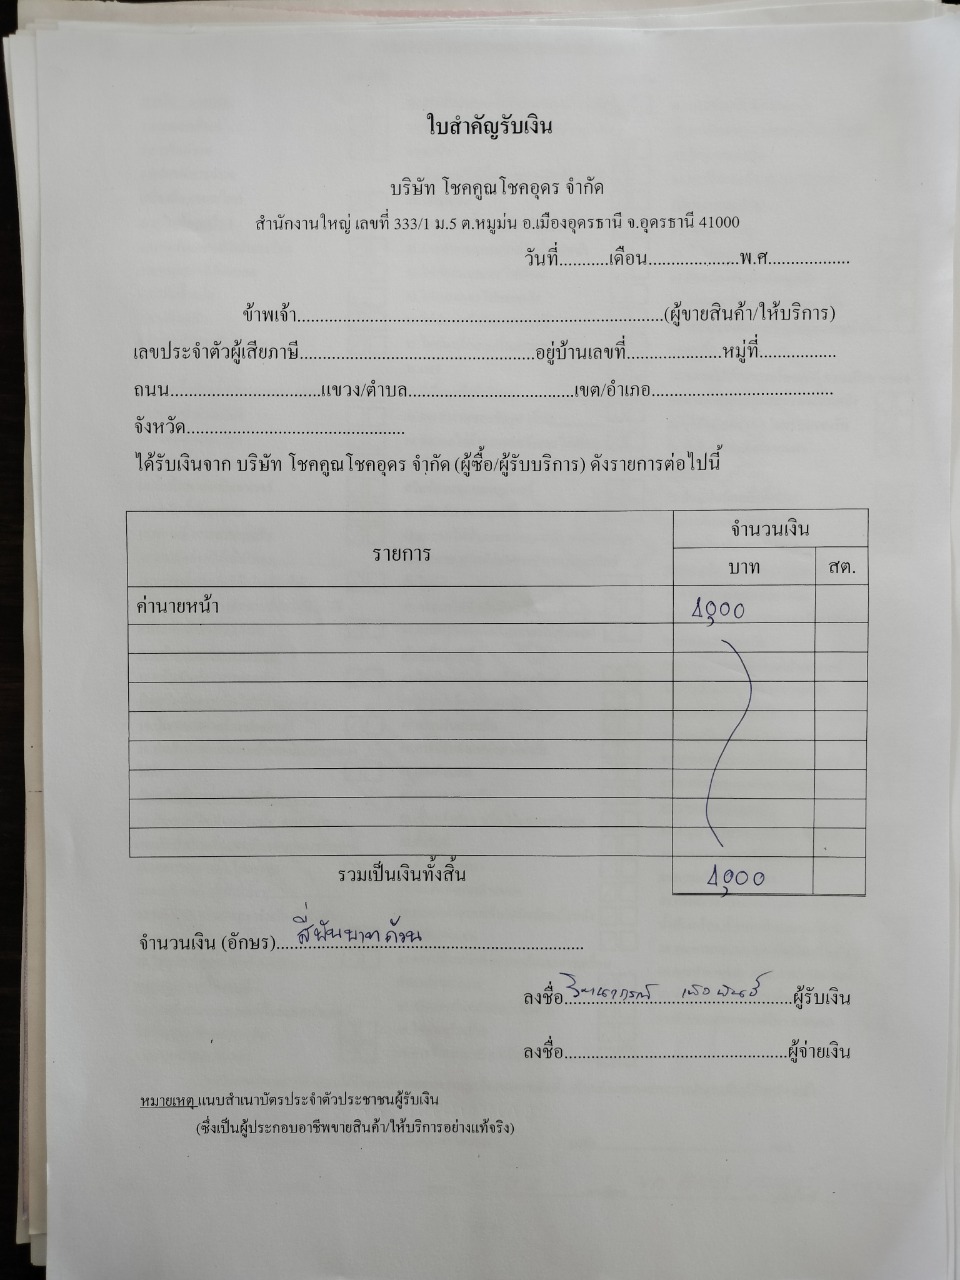 ใบสำคัญรับเงิน
บริษัท โชคคูณโชคอุดร จำกัด
สำนักงานใหญ่ เลขที่ 333/1 ม.5 ต.หมูม่น อ.เมืองอุดรธานี จ.อุดรธานี 41000
วันที่...........เดือน....................พ.ศ..................
ข้าพเจ้า................................................................................(ผู้ขายสินค้า/ให้บริการ)
เลขประจำตัวผู้เสียภาษี...................................................อยู่บ้านเลขที่.....................หมู่ที่.................
ถนน.................................แขวง/ตำบล....................................เขต/อำเภอ........................................
จังหวัด...............................................
ได้รับเงินจาก บริษัท โชคคูณโชคอุดร จำกัด (ผู้ซื้อ/ผู้รับบริการ) ดังรายการต่อไปนี้
รายการ จำนวนเงิน
บาท สต.
ค่านายหน้า 4,000
รวมเป็นเงินทั้งสิ้น 4,000
จำนวนเงิน (อักษร)....สี่พันบาทถ้วน...................................
ลงชื่อ..................................................ผู้รับเงิน
ลงชื่อ.................................................ผู้จ่ายเงิน
หมายเหตุ แนบสำเนาบัตรประจำตัวประชาชนผู้รับเงิน
(ซึ่งเป็นผู้ประกอบอาชีพขายสินค้า/ให้บริการอย่างแท้จริง)